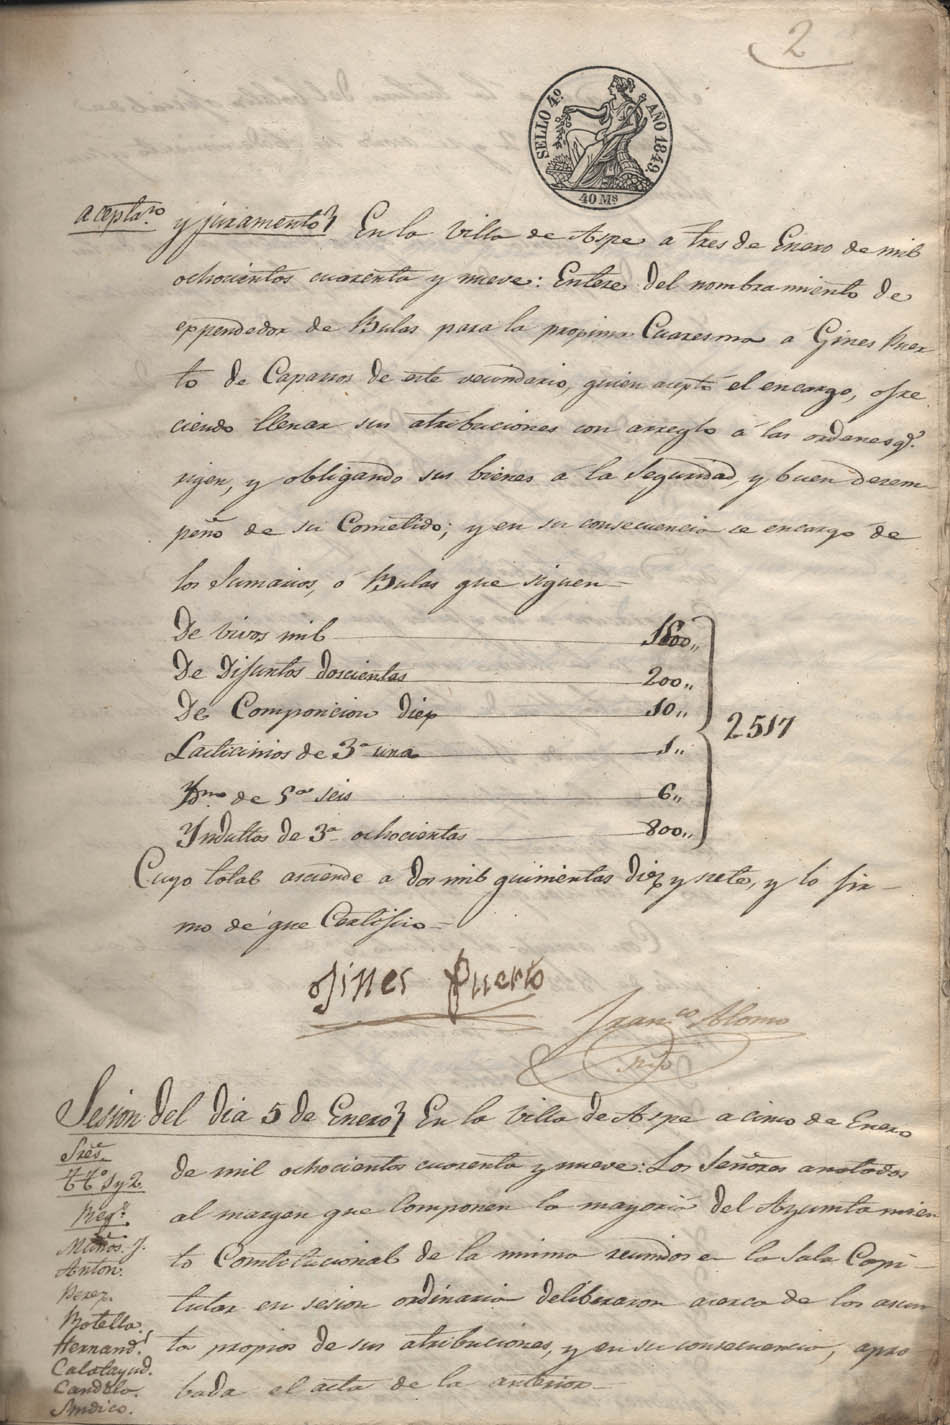 2
SELLO 4º AÑO 1849.
40 Ms
aceptaºn y juramento} En la Villa de Aspe a tres de Enero de mil
ochocientos cuarenta y nueve: Entere del nombramiento de
expendedor de Bulas para la proxima Cuaresma a Gines Puer-
to de Caparros de este vecindario, quien aceptó el encargo, ofre-
ciendo llenar sus atribuciones con arreglo á las ordenes q.e
rigen, y obligando sus bienes á la seguridad, y buen desem-
peño de su Cometido; y en su consecuencia se encargo de
los Sumarios, ó Bulas que siguen
De vivos mil
De Difuntos doscientas 200,,
De Composicion diez 10,,
Lacticinios de 3ª una 1,,
Ydmo de 5ª seis 6,,
Yndultos de 3ª ochocientas 800,,
2517
Cuyo total asciende a dos mil quinientas diez y siete, y lo fir-
mo de que Certifico
Gines Puerto
Fran.co Alonso
Srio
Sesion del dia 5 de Enero} En la Villa de Aspe a cinco de Enero
de mil ochocientos cuarenta y nueve: Los Señores anotados
al margen que componen la mayoria del Ayuntamien
to Constitucional de la misma reunidos en la Sala Capi-
tular en sesion ordinaria deliberaron acerca de los asun
tos propios de sus atribuciones, y en su consecuencia, apro
bada el acta de la anterior
Sres
Tt.º 1 y 2.
Reg.s
Muños. J.
Anton.
Perez.
Botella.
Hernand.z
Calatayud.
Candela.
Sindico.